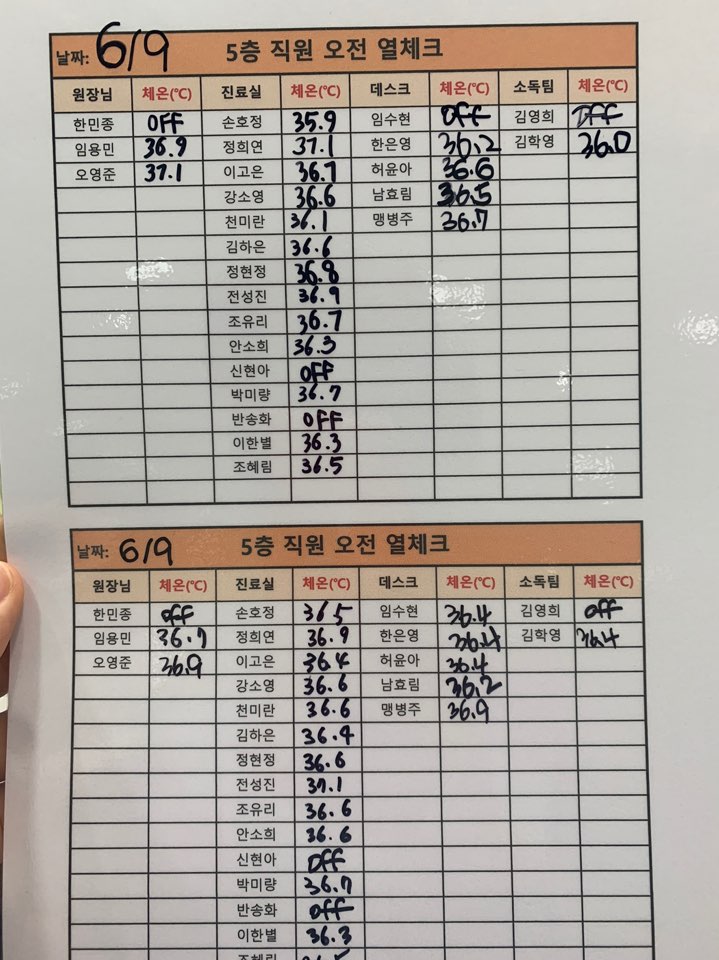 날짜: 6/9 5층 직원 오전 열체크
원장님 체온(℃) 진료실 체온(℃) 데스크 체온(℃) 소독팀 체온(℃)
한민종 OFF 손호정 35.9 임수현 OFF 김영희 OFF
임용민 36.9 정희연 37.1 한은영 36.2 김학영 36.0
오영준 37.1 이고은 36.7 허윤아 36.6
강소영 36.6 남효림 36.5
천미란 36.1 맹병주 36.7
김하은 36.6
정현정 36.8
전성진 36.9
조유리 36.7
안소희 36.3
신현아 OFF
박미량 36.7
반송화 OFF
이한별 36.3
조혜림 36.5
날짜: 6/9 5층 직원 오전 열체크
원장님 체온(℃) 진료실 체온(℃) 데스크 체온(℃) 소독팀 체온(℃)
한민종 off 손호정 36.5 임수현 36.4 김영희 off
임용민 36.7 정희연 36.9 한은영 36.4 김학영 36.4
오영준 36.9 이고은 36.4 허윤아 36.4
강소영 36.6 남효림 36.2
천미란 36.6 맹병주 36.9
김하은 36.4
정현정 36.6
전성진 37.1
조유리 36.6
안소희 36.6
신현아 off
박미량 36.7
반송화 off
이한별 36.3